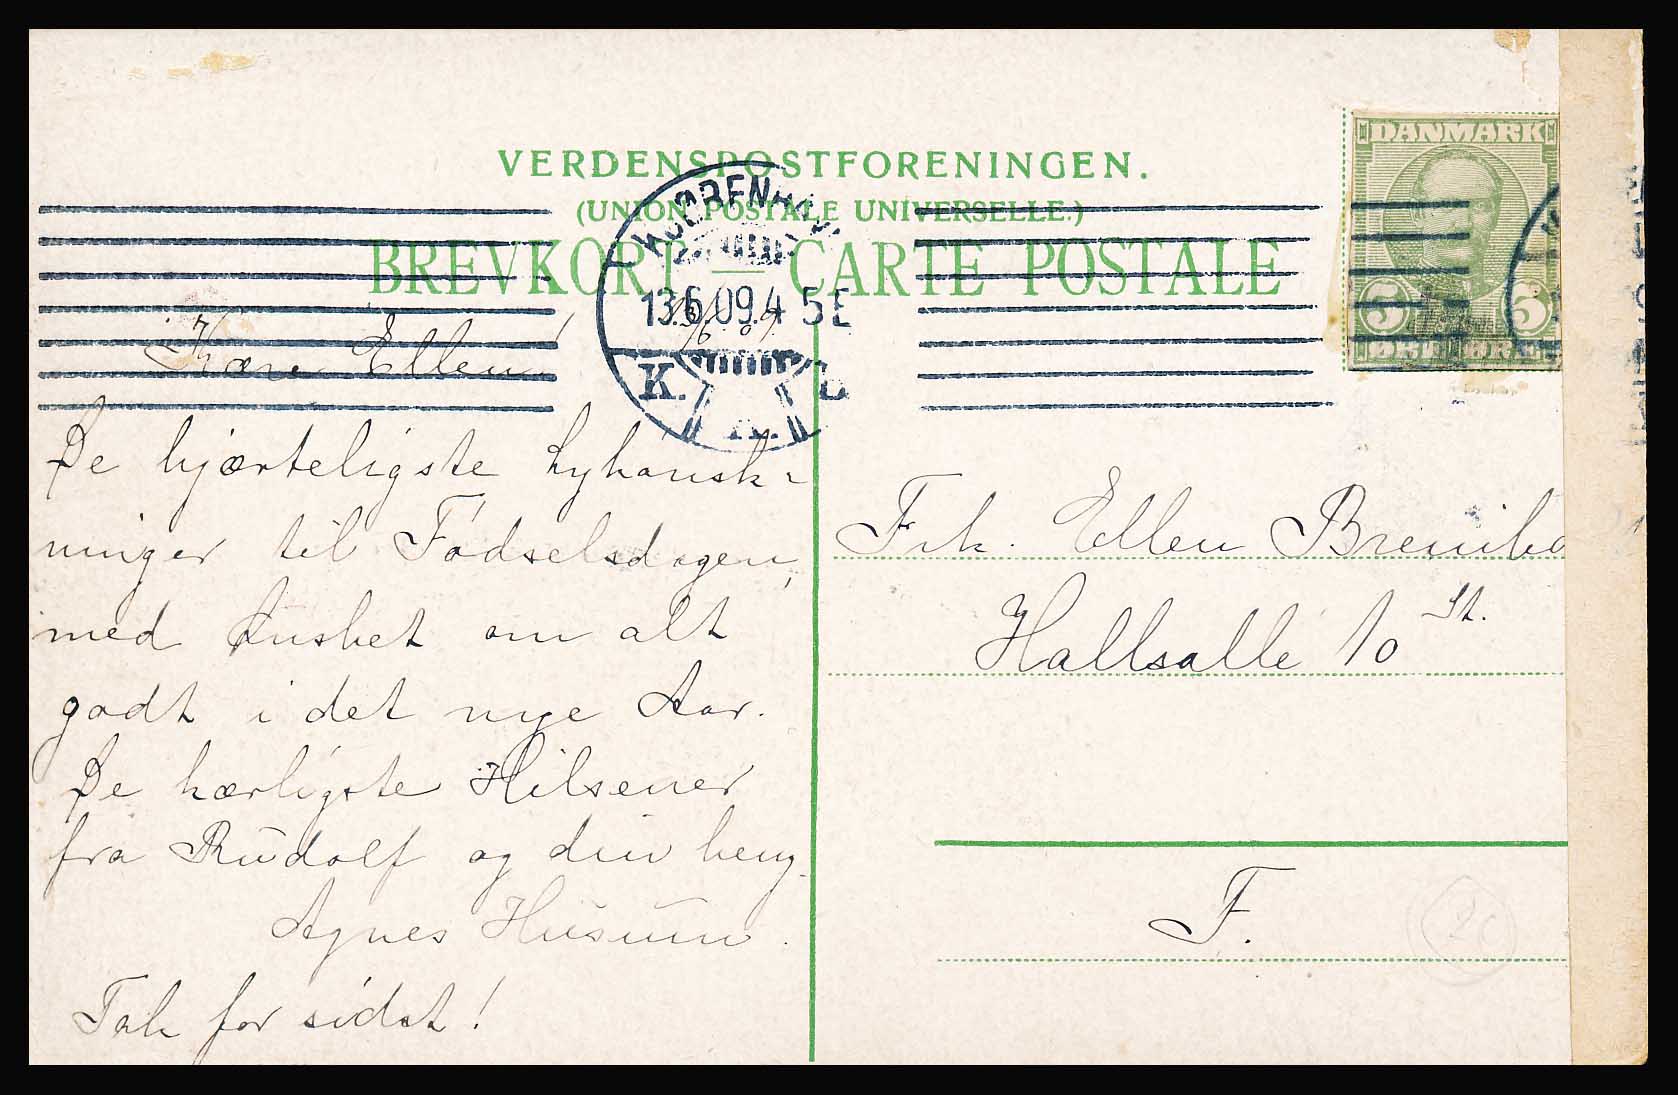 VERDENSPOSTFORENINGEN.
(UNION POSTALE UNIVERSELLE.)
BREVKORT — CARTE POSTALE
DANMARK
5 5
ØRE ØRE
KØBENHAVN
13.6.09. 4 5 E
K.
13/6 09.
Kære Ellen!
De hjærteligste Lykønsk-
ninger til Fødselsdagen,
med Ønsket om alt
godt i det nye Aar.
De kærligste Hilsener
fra Rudolf og din heng.
Agnes Husum.
Tak for sidst!
Frk. Ellen
Hallsallé 10 St.
F.